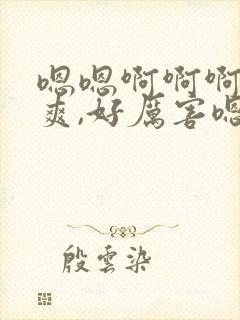 嗯嗯啊啊啊
爽,好厲害嗯
殷雲染